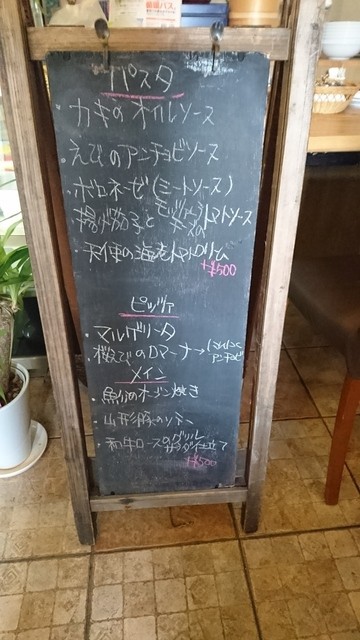 パスタ
・カキのオイルソース
・えびのアンチョビソース
・ボロネーゼ(ミートソース)
・揚げ茄子とモッツァレラチーズのトマトソース
・天使の海老トマトクリーム
+¥500
ピッツァ
・マルゲリータ
・桜えびのロマーナ→
アンチョビ
メイン
・魚介のオーブン焼き
・山形豚のソテー
・和牛ロースのグリル サラダ仕立て
+¥500